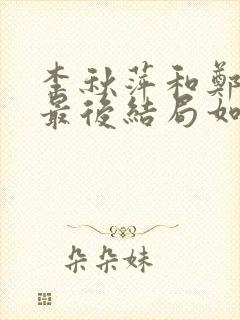 李秋萍和鄭
最後結局如
朵朵妹